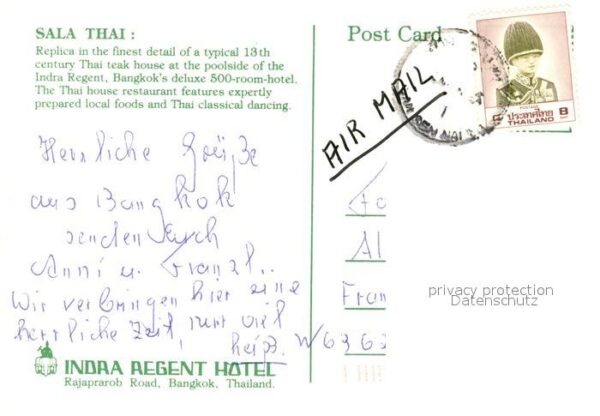 SALA THAI :
Replica in the finest detail of a typical 13th
century Thai teak house at the poolside of the
Indra Regent, Bangkok's deluxe 500-room-hotel.
The Thai house restaurant features expertly
prepared local foods and Thai classical dancing.
Herrliche Grüße
aus Bangkok
senden Euch
Anni u. Franzl..
Wir verbringen hier eine
herrliche Zeit, nur viel
heiß.
INDRA REGENT HOTEL
Rajaprarob Road, Bangkok, Thailand.
Post Card
AIR MAIL
POSTAGE
8 ประเทศไทย 8
THAILAND
Fran
W 6363
privacy protection
Datenschutz